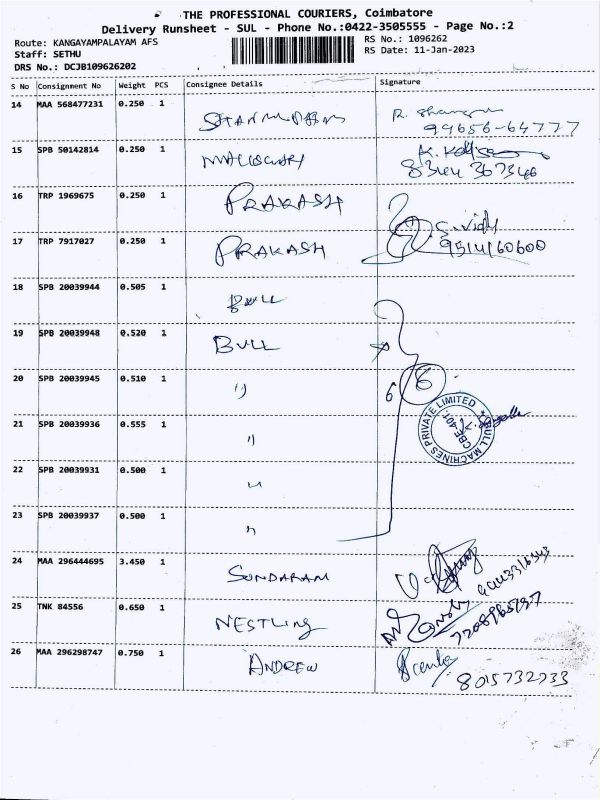 THE PROFESSIONAL COURIERS, Coimbatore
Delivery Runsheet - SUL - Phone No.:0422-3505555 - Page No.:2
Route: KANGAYAMPALAYAM AFS
RS No.: 1096262
Staff: SETHU
RS Date: 11-Jan-2023
DRS No.: DCJB109626202
S No Consignment No Weight PCS Consignee Details Signature
14 MAA 568477231 0.250 1
99656-64777
15 SPB 50142814 0.250 1
8344 367346
16 TRP 1969675 0.250 1 PRAKASH
17 TRP 7917027 0.250 1 PRAKASH S. Vidh
9514160600
18 SPB 20039944 0.505 1 BULL
19 SPB 20039948 0.520 1 BULL
20 SPB 20039945 0.510 1 " 6 6
21 SPB 20039936 0.555 1 "
BULL MACHINES PRIVATE LIMITED
CBE 401
22 SPB 20039931 0.500 1 "
23 SPB 20039937 0.500 1 "
24 MAA 296444695 3.450 1 SUNDARAM
25 TNK 84556 0.650 1 NESTLING
26 MAA 296298747 0.750 1 ANDREW
8015732733